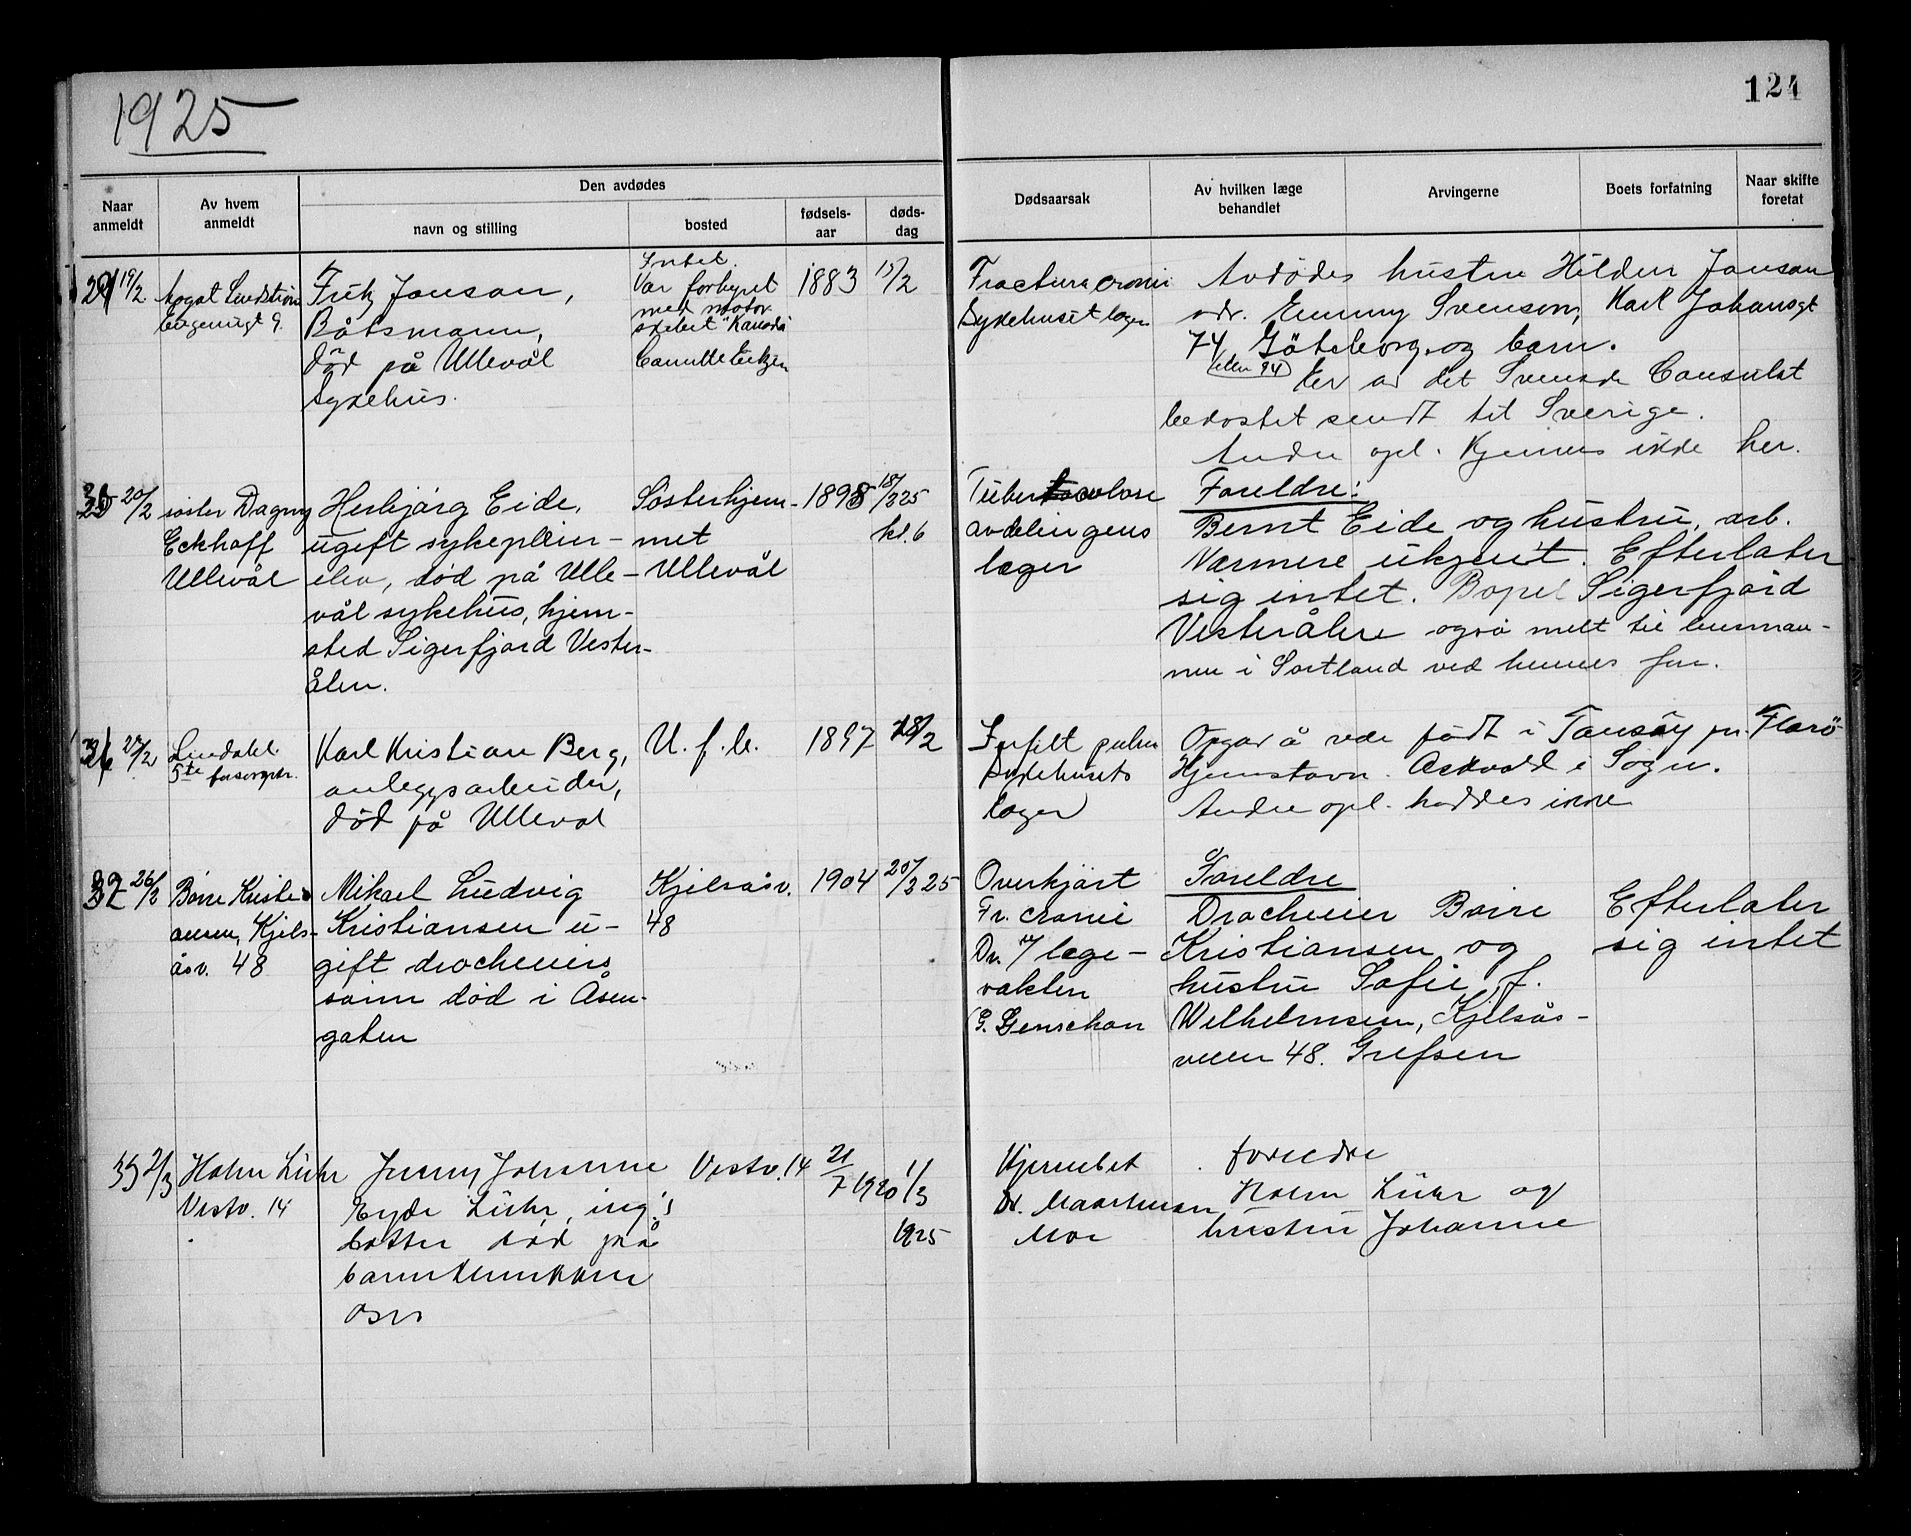 1925
124
Naar anmeldt
Av hvem anmeldt
Den avdødes
navn og stilling
bosted
fødsels-aar
døds-dag
Dødsaarsak
Av hvilken læge behandlet
Arvingerne
Boets forfatning
Naar skifte foretat
19/2
Fritz Janson,
Båtsmann,
død på Ullevål
sykehus.
Intet.
Var forhyret
med motor
skibet "Kanada"
1883
15/2
Fractura cranii
Sykehuset læger
Avdødes hustru Hildur Janson
adr. Emmy Svenson, Karl Johansgt
74 Göteborg og barn.
eller 94
Er av det Svenske Consulat
bekostet sendt til Sverige.
Andre opl. kjennes ikke her.
20/2
søster Dagny
Eckhoff
Ullevål
Herbjørg Eide,
ugift sykepleier-
elev, død på Ulle-
vål sykehus, hjem-
sted Sigerfjord Vester-
ålen.
Søsterhjem-
met
Ullevål
1898
18/2 25
kl. 6
Tuberkulose
avdelingens
læger
Foreldre:
Bernt Eide og hustru, arb.
Nærmere ukjent. Efterlater
sig intet. Bopel Sigerfjord
Vesterålen også melt til lensman-
nen i Sortland ved hennes far.
27/2
Lindahl
5te forsorgktr.
Karl Kristian Berg,
anleggsarbeider,
død på Ulleval
U. f. b.
1897
18/2
Infilt pulm
Sykehusets
læger
Opgav å være født i Tansøy pr. Florø
Hjemstavn Askvold i Sogn.
Andre opl. haddes ikke
32
26/2
Børre Kristi-
ansen, Kjels-
åsv. 48
Mikael Ludvig
Kristiansen u-
gift drocheeiers
sønn død i Åsen-
gaten
Kjelsåsv.
48
1904
20/2 25
Overkjørt
Fr. cranii
Dr. 7 læge-
vakten
Foreldre
Drocheeier Børre
Kristiansen og
hustru Sofie, f.
Wilhelmsen, Kjelsås-
veien 48. Grefsen
Efterlater
sig intet
33
2/3
Holm Lühr
Vestv. 14
Jenny Johanne
Eyde Lühr, ing.'s
datter død på
barneklinikken
Oslo
Vestv. 14
21/7 1920
1/3
1925
Hjernebet
Dr.
Moe
foreldre
Holm Lühr og
hustru Johanne